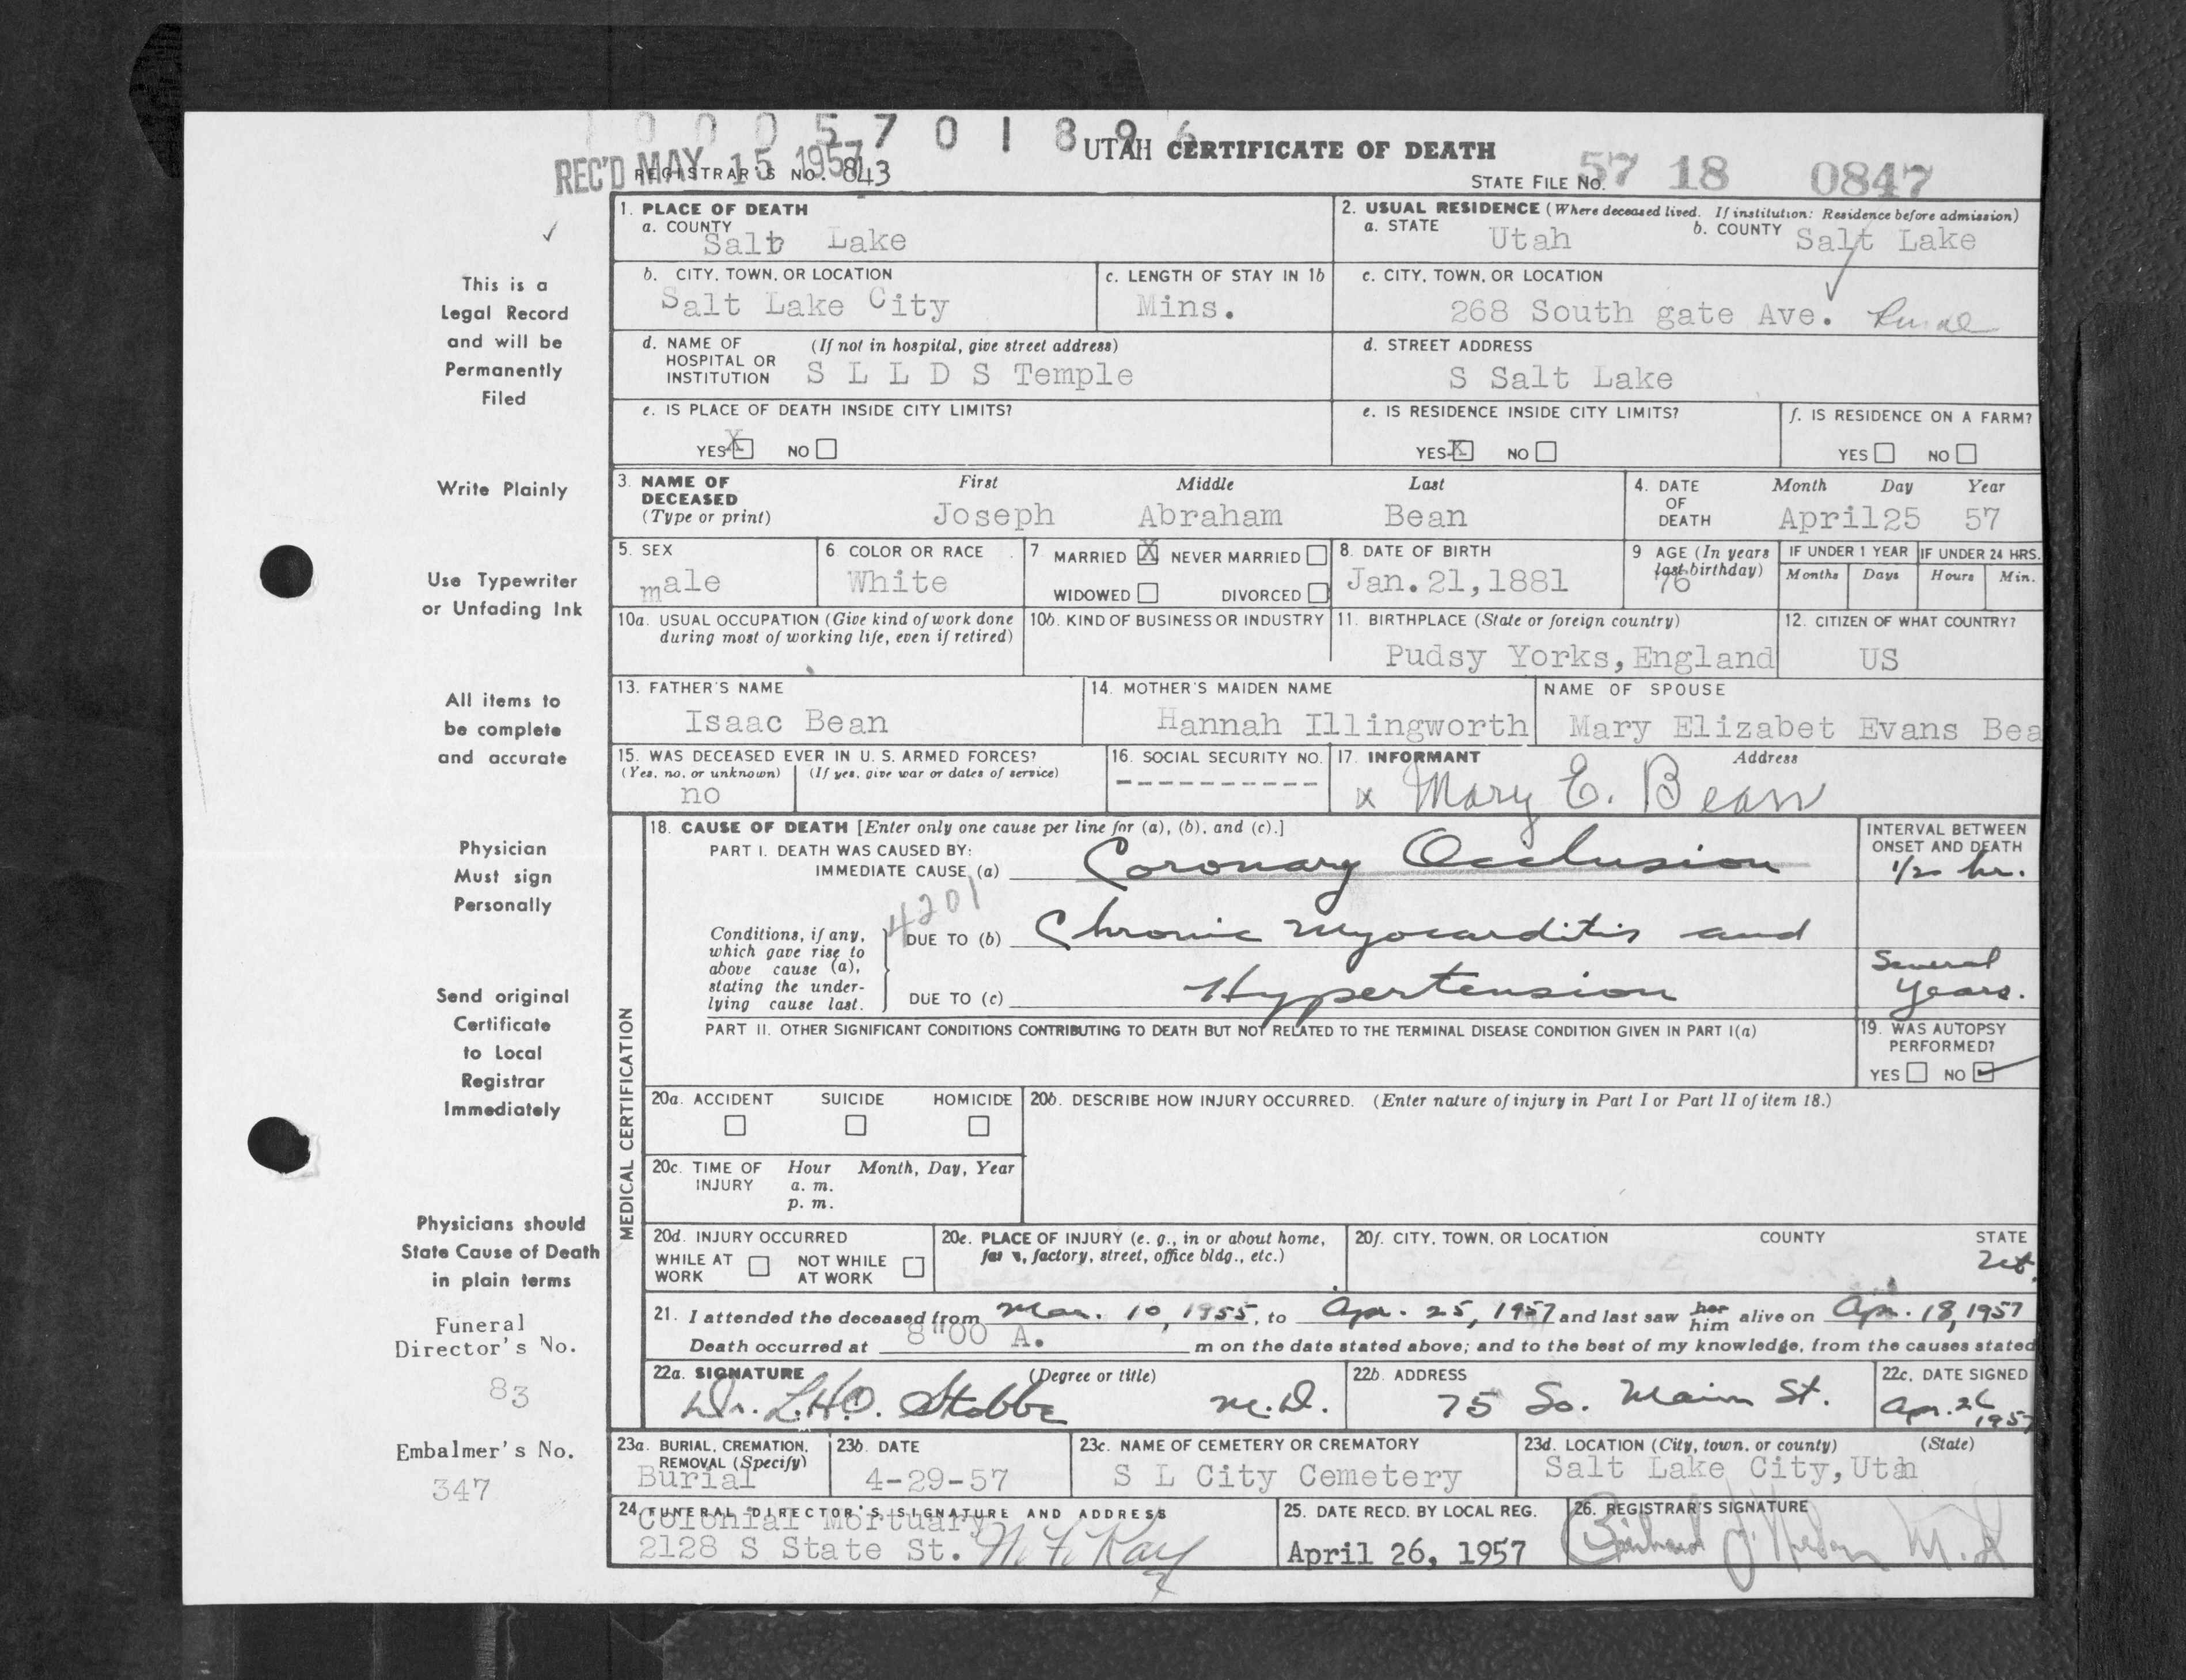 1 0 0 0 5 7 0 1 8 9 6
UTAH CERTIFICATE OF DEATH
REC'D MAY 15 1957
REGISTRAR'S NO. 843
STATE FILE NO. 57 18 0847
1. PLACE OF DEATH
a. COUNTY
Salt Lake
2. USUAL RESIDENCE (Where deceased lived. If institution: Residence before admission)
a. STATE Utah b. COUNTY Salt Lake
b. CITY, TOWN, OR LOCATION
Salt Lake City
c. LENGTH OF STAY IN 1b
Mins.
c. CITY, TOWN, OR LOCATION
268 South gate Ave. Rural
d. NAME OF HOSPITAL OR INSTITUTION (If not in hospital, give street address)
S L L D S Temple
d. STREET ADDRESS
S Salt Lake
e. IS PLACE OF DEATH INSIDE CITY LIMITS?
YES X NO
e. IS RESIDENCE INSIDE CITY LIMITS?
YES X NO
f. IS RESIDENCE ON A FARM?
YES NO
3. NAME OF DECEASED (Type or print)
First Middle Last
Joseph Abraham Bean
4. DATE OF DEATH
Month Day Year
April 25 57
5. SEX
male
6. COLOR OR RACE
White
7. MARRIED X NEVER MARRIED
WIDOWED DIVORCED
8. DATE OF BIRTH
Jan. 21, 1881
9 AGE (In years last birthday)
76
IF UNDER 1 YEAR
Months Days
IF UNDER 24 HRS.
Hours Min.
10a. USUAL OCCUPATION (Give kind of work done
during most of working life, even if retired)
10b. KIND OF BUSINESS OR INDUSTRY
11. BIRTHPLACE (State or foreign country)
Pudsy Yorks, England
12. CITIZEN OF WHAT COUNTRY?
US
13. FATHER'S NAME
Isaac Bean
14. MOTHER'S MAIDEN NAME
Hannah Illingworth
NAME OF SPOUSE
Mary Elizabet Evans Bea
15. WAS DECEASED EVER IN U. S. ARMED FORCES?
(Yes, no, or unknown) (If yes, give war or dates of service)
no
16. SOCIAL SECURITY NO.
-----------
17. INFORMANT Address
x Mary E. Bean
MEDICAL CERTIFICATION
18. CAUSE OF DEATH [Enter only one cause per line for (a), (b), and (c).]
PART I. DEATH WAS CAUSED BY:
IMMEDIATE CAUSE (a) Coronary Occlusion
INTERVAL BETWEEN
ONSET AND DEATH
1/2 hr.
4201
Conditions, if any,
which gave rise to
above cause (a),
stating the under-
lying cause last.
DUE TO (b) Chronic Myocarditis and
DUE TO (c) Hypertension
Several
years.
PART II. OTHER SIGNIFICANT CONDITIONS CONTRIBUTING TO DEATH BUT NOT RELATED TO THE TERMINAL DISEASE CONDITION GIVEN IN PART I(a)
19. WAS AUTOPSY
PERFORMED?
YES NO ✓
20a. ACCIDENT SUICIDE HOMICIDE
20b. DESCRIBE HOW INJURY OCCURRED. (Enter nature of injury in Part I or Part II of item 18.)
20c. TIME OF INJURY Hour Month, Day, Year
a. m.
p. m.
20d. INJURY OCCURRED
WHILE AT WORK NOT WHILE AT WORK
20e. PLACE OF INJURY (e. g., in or about home,
farm, factory, street, office bldg., etc.)
20f. CITY, TOWN, OR LOCATION COUNTY STATE
21. I attended the deceased from Mar. 10, 1955, to Apr. 25, 1957 and last saw her him alive on Apr. 18, 1957
Death occurred at 8"00 A. m on the date stated above; and to the best of my knowledge, from the causes stated
22a. SIGNATURE (Degree or title)
Dr. L.H.O. Stobbe M.D.
22b. ADDRESS
75 So. Main St.
22c. DATE SIGNED
Apr. 26
1957
23a. BURIAL, CREMATION,
REMOVAL (Specify)
Burial
23b. DATE
4-29-57
23c. NAME OF CEMETERY OR CREMATORY
S L City Cemetery
23d. LOCATION (City, town, or county) (State)
Salt Lake City, Utah
24. FUNERAL DIRECTOR'S SIGNATURE AND ADDRESS
Colonial Mortuary
2128 S State St.
25. DATE RECD. BY LOCAL REG.
April 26, 1957
26. REGISTRAR'S SIGNATURE
M.D.
This is a
Legal Record
and will be
Permanently
Filed
Write Plainly
Use Typewriter
or Unfading Ink
All items to
be complete
and accurate
Physician
Must sign
Personally
Send original
Certificate
to Local
Registrar
Immediately
Physicians should
State Cause of Death
in plain terms
Funeral
Director's No.
83
Embalmer's No.
347